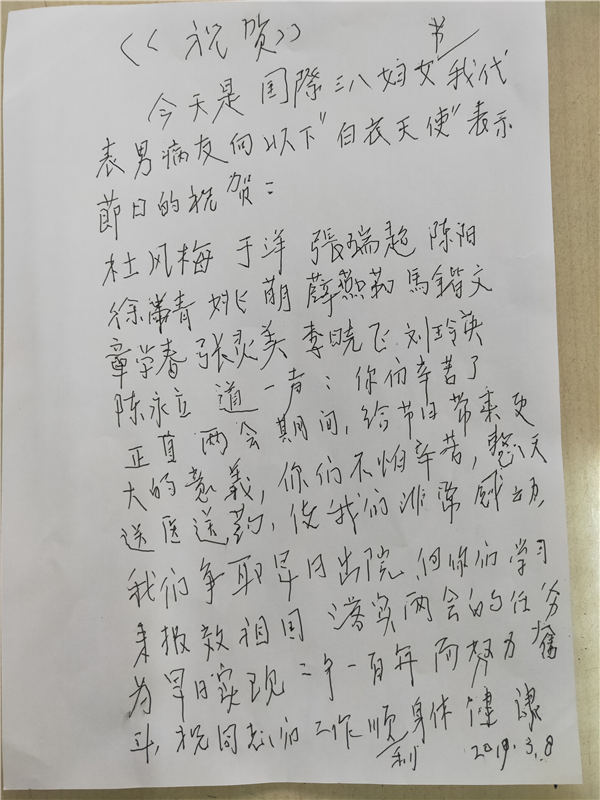 《祝贺》
今天是国際三八妇女节我代
表男病友向以下"白衣天使"表示
節日的祝贺：
杜风梅 于洋 張瑞超 陈阳
徐 青 姚萌 薛燕茹 馬鍇文
章学春 張灵美 李晓飞 刘玲英
陈永立 道一声：你们辛苦了
正直两会期间，给节日带来更
大的意義，你们不怕辛苦，整天
送医送药，使我们非常感动，
我们争取早日出院，向你们学习
来报效祖国 落实两会的任务
为早日实现二个一百年而努力奮
斗，祝同志们工作顺利身体健康
2019.3.8